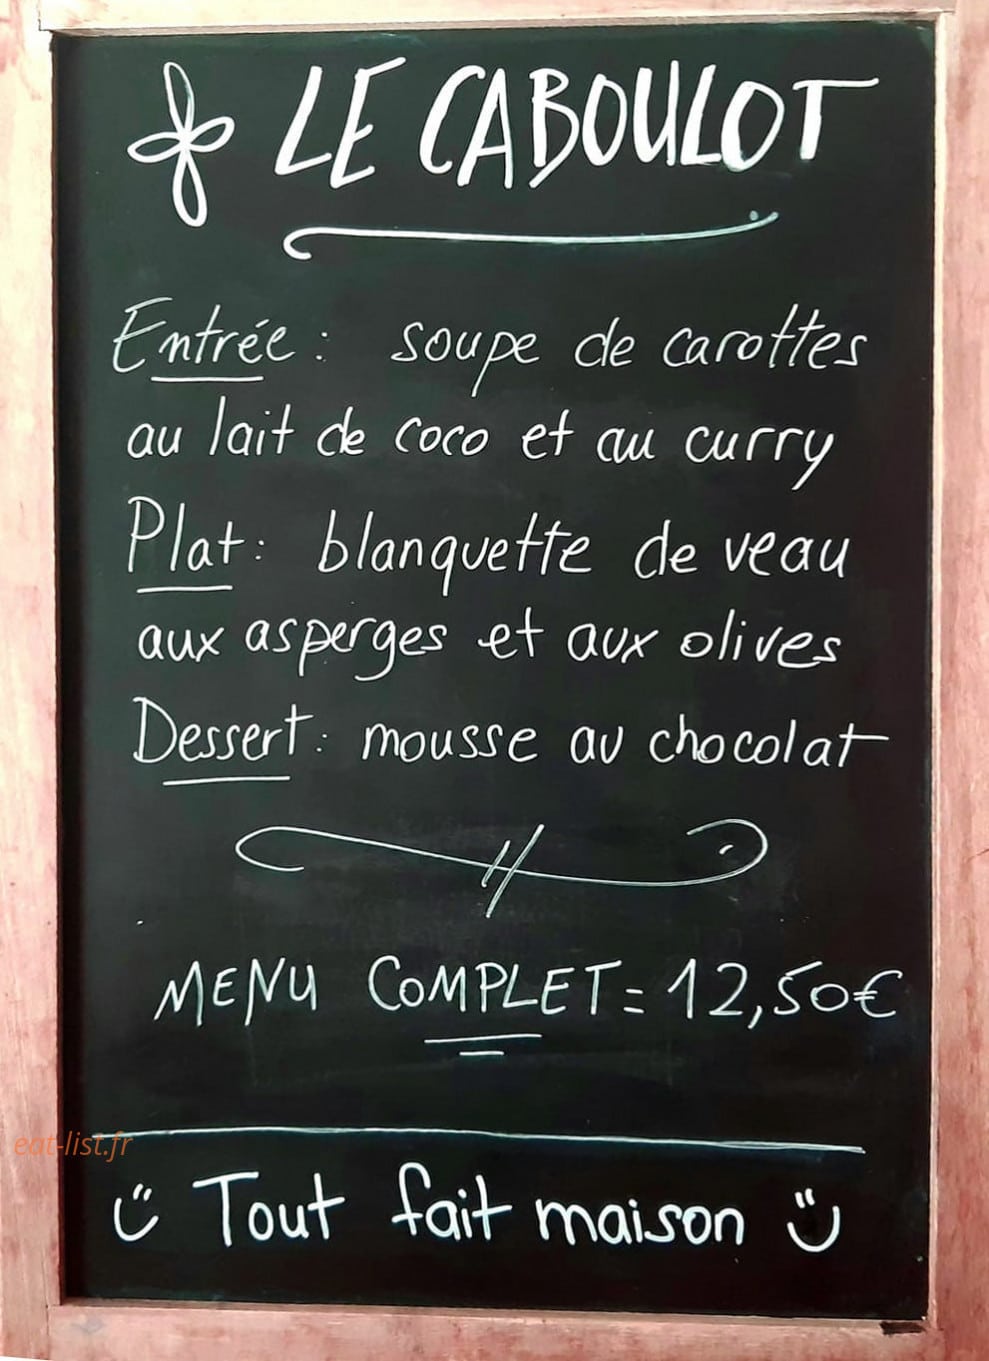 LE CABOULOT
Entrée : soupe de carottes
au lait de coco et au curry
Plat : blanquette de veau
aux asperges et aux olives
Dessert : mousse au chocolat
MENU COMPLET = 12,50€
eat-list.fr
Tout fait maison